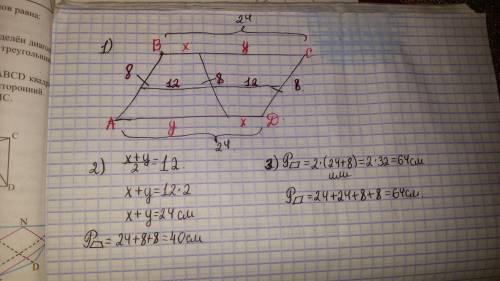 ов равна:
делён диагон
треугольник
ABCD квадр
сторонний.
МС.
C
D
N
D
1)
24
B x y C
8 12 8 12 8
A y x D
24
2) x+y/2 = 12
x+y=12·2
x+y=24см
P = 24+8+8=40см
3) P = 2·(24+8)=2·32=64см
или
P = 24+24+8+8=64см.